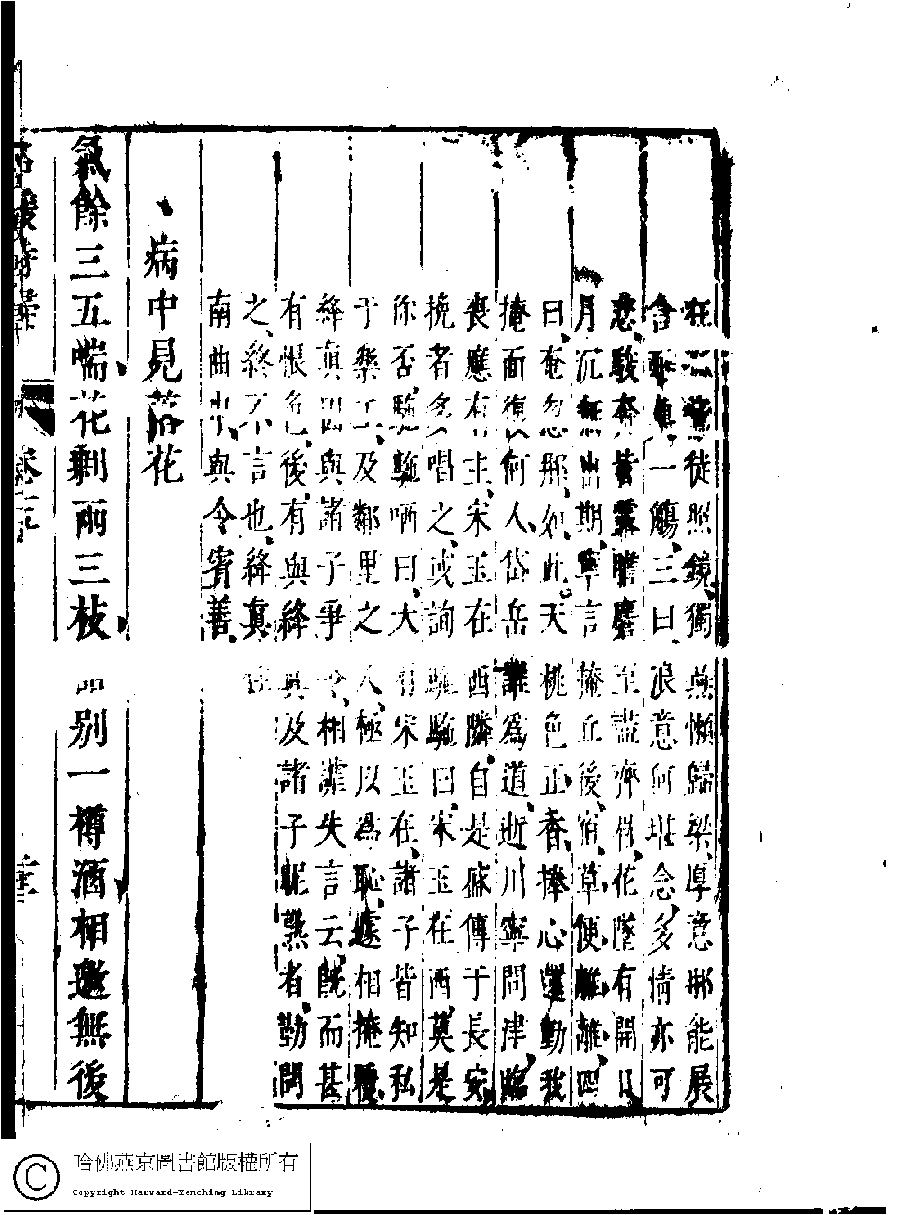 在鸞徒照鏡獨燕懶歸梁厚意那能展
含酸奠一觴三曰浪意何堪念多情亦可
悲駿奔皆露膽麏至盡齊眉花墜有開日
月沉無出期寧言掩丘後宿草便離離四
曰奄忽那如此夭桃色正春捧心還動我
掩面復何人岱岳誰為道逝川寧問津臨
喪應有主宋玉在西隣自是盛傳于長安
挽者多唱之或詢駞駞曰宋玉在西莫是
你否駞駞哂曰大有宋玉在諸子皆知私
于樂工及鄰里之人極以為恥遞相掩覆
絳真因與諸子爭令相謔失言云既而甚
有恨色後有與絳真及諸子昵熟者勤問
之終不言也絳真住
南曲中與令賓善
病中見落花
氣餘三五喘花剩兩三枝話別一樽酒相邀無後
名媛詩歸 卷十五
哈佛燕京圖書館版權所有
Copyright Harvard-Yenching Library